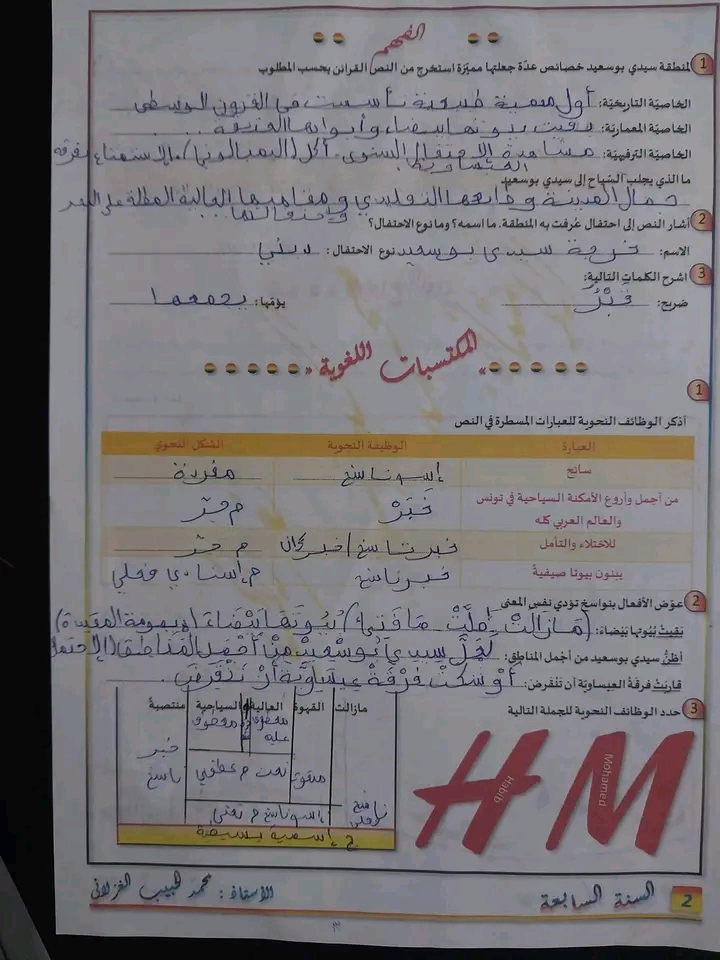 الفهم
1 لمنطقة سيدي بوسعيد خصائص عدّة جعلتها مميّزة استخرج من النص القرائن بحسب المطلوب
الخاصيّة التاريخيّة: أول مدينة تأسست في القرون الوسطى
الخاصيّة المعمارية: بيوتها بيضاء وأبوابها
الخاصيّة الترفيهيّة: مشاهدة الاحتفال السنوي. أكل (البمبالوني). الاستمتاع بفرقة
العيساوية
ما الذي يجلب السّياح إلى سيدي بوسعيد
جمال المدينة و ومقاهيها العالية المطلة على البحر
واحتفالاتها
2 أشار النص إلى احتفال عُرفت به المنطقة. ما اسمه؟ وما نوع الاحتفال؟
الاسم: خرجة سيدي بوسعيد نوع الاحتفال: ديني
3 اشرح الكلمات التالية:
ضريح: قَبْرُ يؤمّها: يجمعها
المكتسبات اللغوية
1
أذكر الوظائف النحوية للعبارات المسطرة في النص
العبارة الوظيفة النحوية الشكل النحوي
سائح إسم ناسخ مفردة
من أجمل وأروع الأمكنة السياحية في تونس خَبَرْ م جرّ
والعالم العربي كله
للاختلاء والتأمل خبر ناسخ / خبر كان م جرّ
يبنون بيوتا صيفيةً خبر ناسخ م إسنادي فعلي
2 عوّض الأفعال بنواسخ تؤدي نفس المعنى
بَقِيتْ بُيُوتها بَيْضاءَ: (مَازَالتْ/ظلّتْ/مَا فَتِئَ) بُيُوتهَا بَيْضَاءَ
أظنّ سيدي بوسعيد من أجمل المناطق: لعَلّ سيدي بوسعيد منْ أجْمل المَنَاطق
قاربَتْ فرقةُ العيساويّة أن تنْقرض: أوْشكتْ فرْقَةُ عيساويّة أنْ تنْقرضَ
3 حدد الوظائف النحوية للجملة التالية
مازالت القهوة العالية و السياحية منتصبةً
معطوف عليه معطوف خبر ناسخ
منعوت نعت م عطفي
ناسخ فعلي إسم ناسخ م نعتي
ج إسمية بسيطة
HM
Habib
Mohamed
2 السنة السابعة الأستاذ: محمد لحبيب الغزلاني